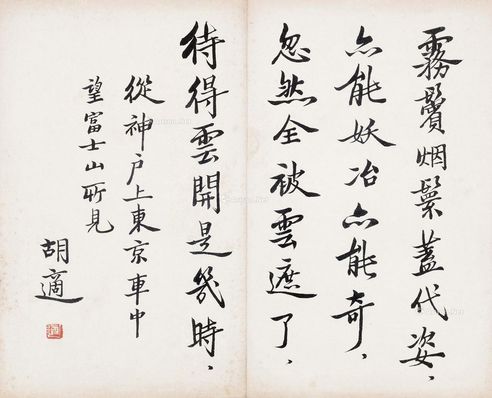 霧鬢烟鬟蓋代姿，
亦能妖冶亦能奇，
忽然全被雲遮了，
待得雲開是幾時，
從神户上東京車中
望富士山所見
胡適